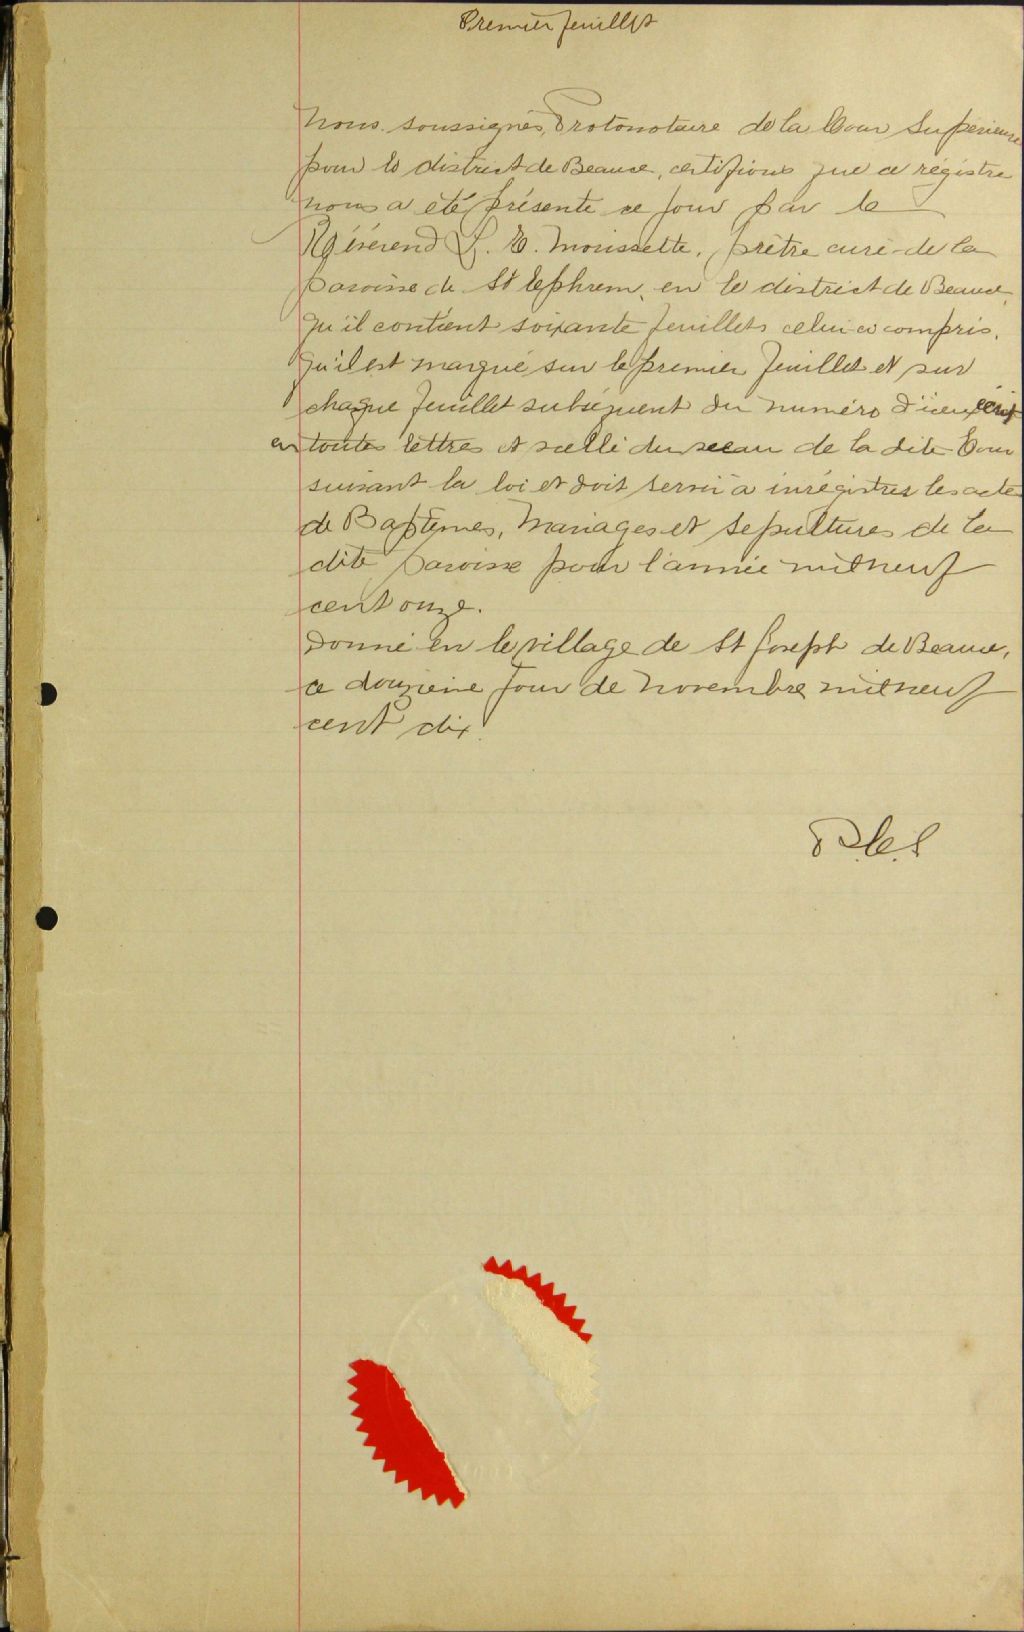 Premier feuillet
Nous soussignés, Protonotaire de la Cour Supérieure
pour le district de Beauce, certifions que ce régistre
nous a été présenté ce jour par le
Révérend L. E. Moussette, prêtre curé de la
paroisse de St Ephrem, en le district de Beauce,
qu'il contient soixante feuillets celui ci compris,
qu'il est marqué sur le premier feuillet et sur
chaque feuillet subséquent du numéro d'iceux écrit
en toutes lettres et scellé du sceau de la dite Cour
suivant la loi et doit servir à inrégistrer les actes
de Baptêmes, Mariages et Sepultures de la
dite Paroisse pour l'année mil neuf
cent onze.
Donné en le village de St Joseph de Beauce,
ce douzieme jour de Novembre mil neuf
cent dix.
P.C.S